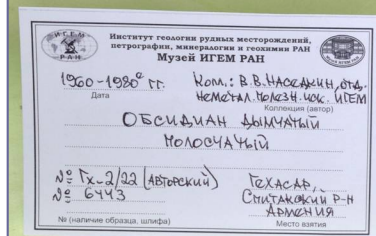 ИГЕМ
РАН
Институт геологии рудных месторождений,
петрографии, минералогии и геохимии РАН
Музей ИГЕМ РАН
1960-1980е гг.
Дата
Кол.: В.В. Наседкин, отд.
неметал. полезн. иск. ИГЕМ
Коллекция (автор)
Обсидиан дымчатый
полосчатый
№ Гх-2/22 (авторский)
№ 6443
№ (наличие образца, шлифа)
Гехасар,
Спитакский р-н
Армения
Место взятия